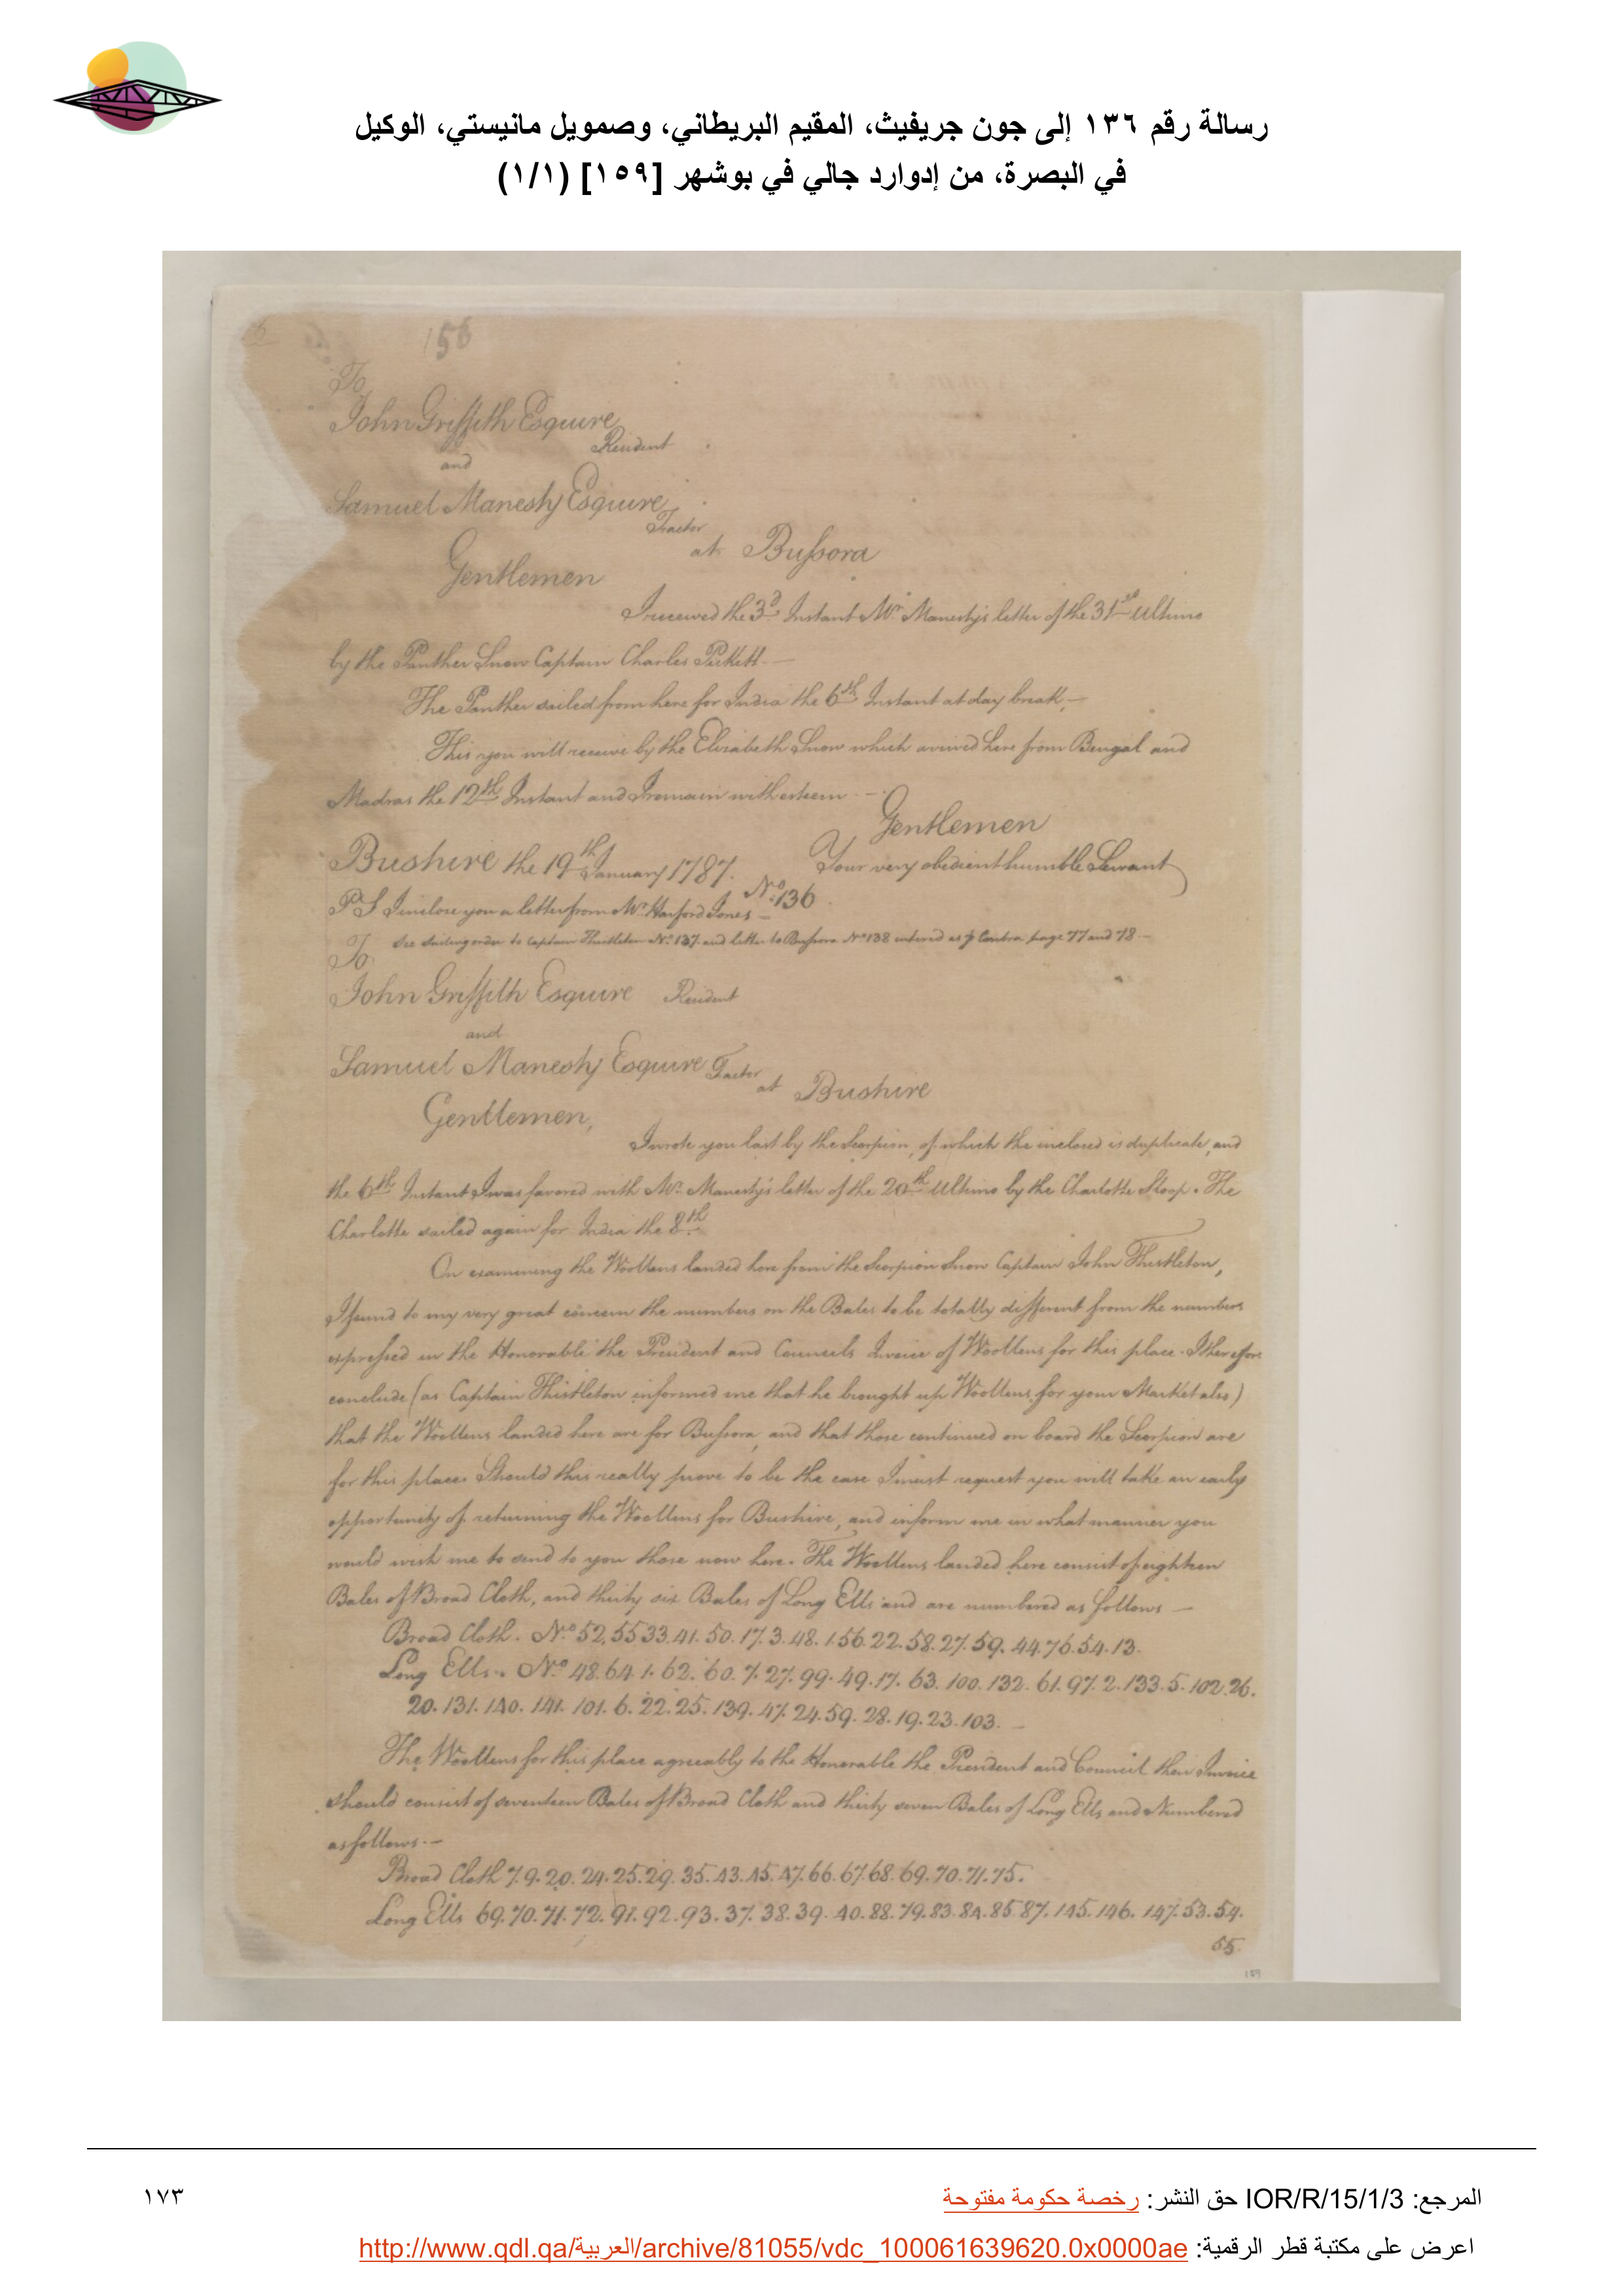 رسالة رقم ١٣٦ إلى جون جريفيث، المقيم البريطاني، وصمويل مانيستي، الوكيل
في البصرة، من إدوارد جالي في بوشهر [١٥٩] (١/١)
156
To
John Griffith Esquire
Resident
and
Samuel Manesty Esquire
Factor
at Bussora
Gentlemen
I received the 3d Instant Mr Manesty's letter of the 31st Ultimo
by the Panther Snow Captain Charles
The Panther sailed from here for India the 6th Instant at day break,—
This you will receive by the Elizabeth Snow which arrived here from Bengal and
Madras the 12th Instant and I remain with esteem —
Gentlemen
Your very obedient humble Servant
Bushire the 19th January 1787.
No 136
PS I inclose you a letter from Mr Harford Jones —
See sailing order to Captain Thistleton No 137 and letter to Bussora No 138 entered as p Contra page 77 and 78 —
To
John Griffith Esquire Resident
and
Samuel Manesty Esquire Factor
at Bushire
Gentlemen,
I wrote you last by the Scorpion, of which the inclosed is duplicate, and
the 6th Instant I was favored with Mr Manesty's letter of the 20th Ultimo by the Charlotte Sloop. The
Charlotte sailed again for India the 8th
On examining the Woollens landed here from the Scorpion Snow Captain John Thistleton,
I found to my very great concern the numbers on the Bales to be totally different from the numbers
expressed in the Honorable the President and Councils Invoice of Woollens for this place. I therefore
conclude (as Captain Thistleton informed me that he brought up Woollens for your Market also)
that the Woollens landed here are for Bussora, and that those continued on board the Scorpion are
for this place. Should this really prove to be the case I must request you will take an early
opportunity of returning the Woollens for Bushire, and inform me in what manner you
would wish me to send to you those now here. The Woollens landed here consist of eighteen
Bales of Broad Cloth, and thirty six Bales of Long Ells and are numbered as follows —
Broad Cloth. No 52.55 33.41.50.17.3.48.1.56.22.58.27.59.44.76.54.13.
Long Ells. No 48.64.1.62.60.7.27.99.49.17.63.100.132.61.97.2.133.5.102.26.
20.131.140.141.101.6.22.25.139.47.24.59.28.19.23.103.—
The Woollens for this place agreeably to the Honorable the President and Council their Invoice
should consist of seventeen Bales of Broad Cloth and thirty seven Bales of Long Ells and Numbered
as follows.—
Broad Cloth 7.9.20.24.25.29.35.43.45.47.66.67.68.69.70.71.75.
Long Ells 69.70.71.72.91.92.93.37.38.39.40.88.79.83.84.85.87.145.146.147.53.54.
55
159
المرجع: IOR/R/15/1/3 حق النشر: رخصة حكومة مفتوحة
١٧٣
اعرض على مكتبة قطر الرقمية: http://www.qdl.qa/العربية/archive/81055/vdc_100061639620.0x0000ae